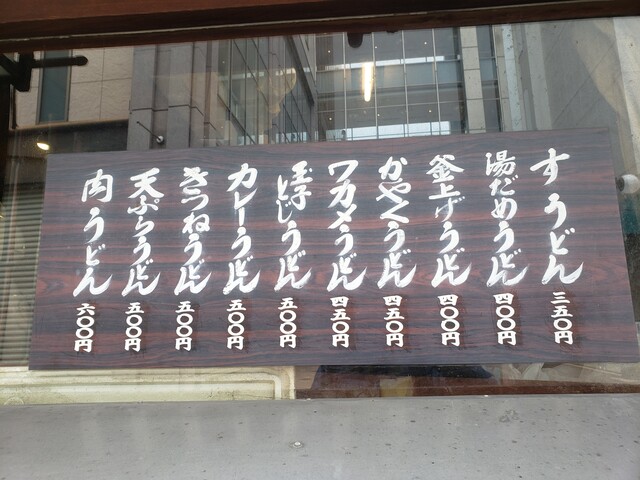 すうどん 三五〇円
湯だめうどん 四〇〇円
釜上げうどん 四〇〇円
かやくうどん 四五〇円
ワカメうどん 四五〇円
玉子とじうどん 五〇〇円
カレーうどん 五〇〇円
きつねうどん 五〇〇円
天ぷらうどん 五〇〇円
肉うどん 六〇〇円